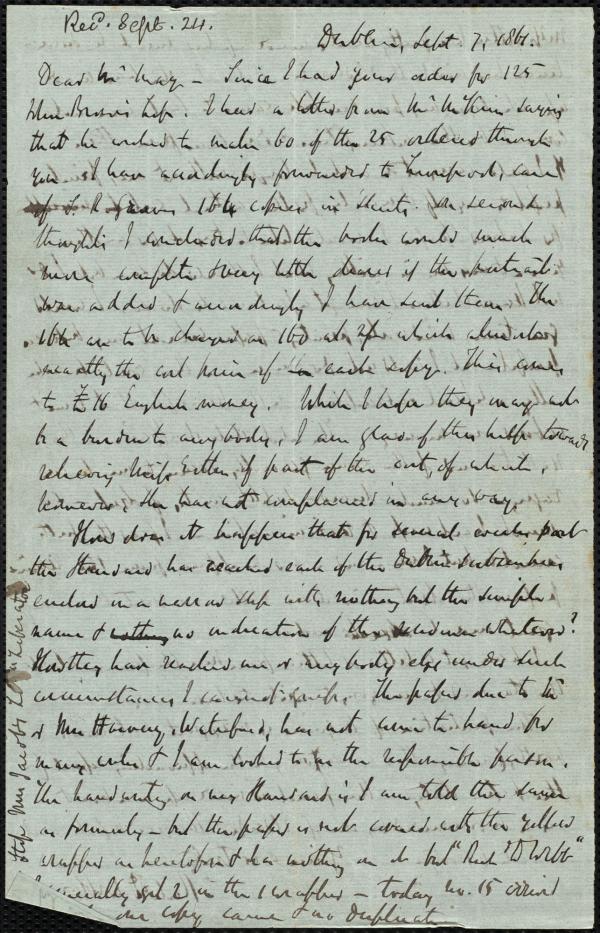 Recd. Sept. 24.
Dublin, Sept 7, 1861.
Dear Mr May - Since I had your order for 125
John Brown's Life. I had a letter from Mr McKim saying
that he wished to make 60 of the 25 ordered through
you & I have accordingly forwarded to Liverpool, care
of 164 copies in sheets. On second
thoughts I concluded that the books would much
more complete & very little dearer if the portrait
was added & accordingly I have sent them. The
164 are to be charged as 160 at 2/- which is
exactly the cost price of each copy. This comes
to £16 English money. While I hope they may not
be a burden to anybody, I am glad of this help towards
relieving Miss of part of the cost, of which,
however, she has not complained in any way.
How does it happen that for several weeks past
the Standard has reached each of the Dublin subscribers
enclosed in a narrow slip with nothing but the simple
name & no indication of the residence whatever?
How they have reached me or anybody else under such
circumstances I cannot guess. The paper due to
Mrs Harvey, Waterford, has not come to hand for
many weeks & I am looked to as the responsible person.
The handwriting on my Standard is I am told the same
as formerly - but the paper is not covered with the yellow
wrapper as heretofore & has nothing on it but "Rich. D Webb"
get 2 in the 1 wrapper - today no. 15 arrived
one copy came & no duplicate
Stop Mrs Jacob's Liberator